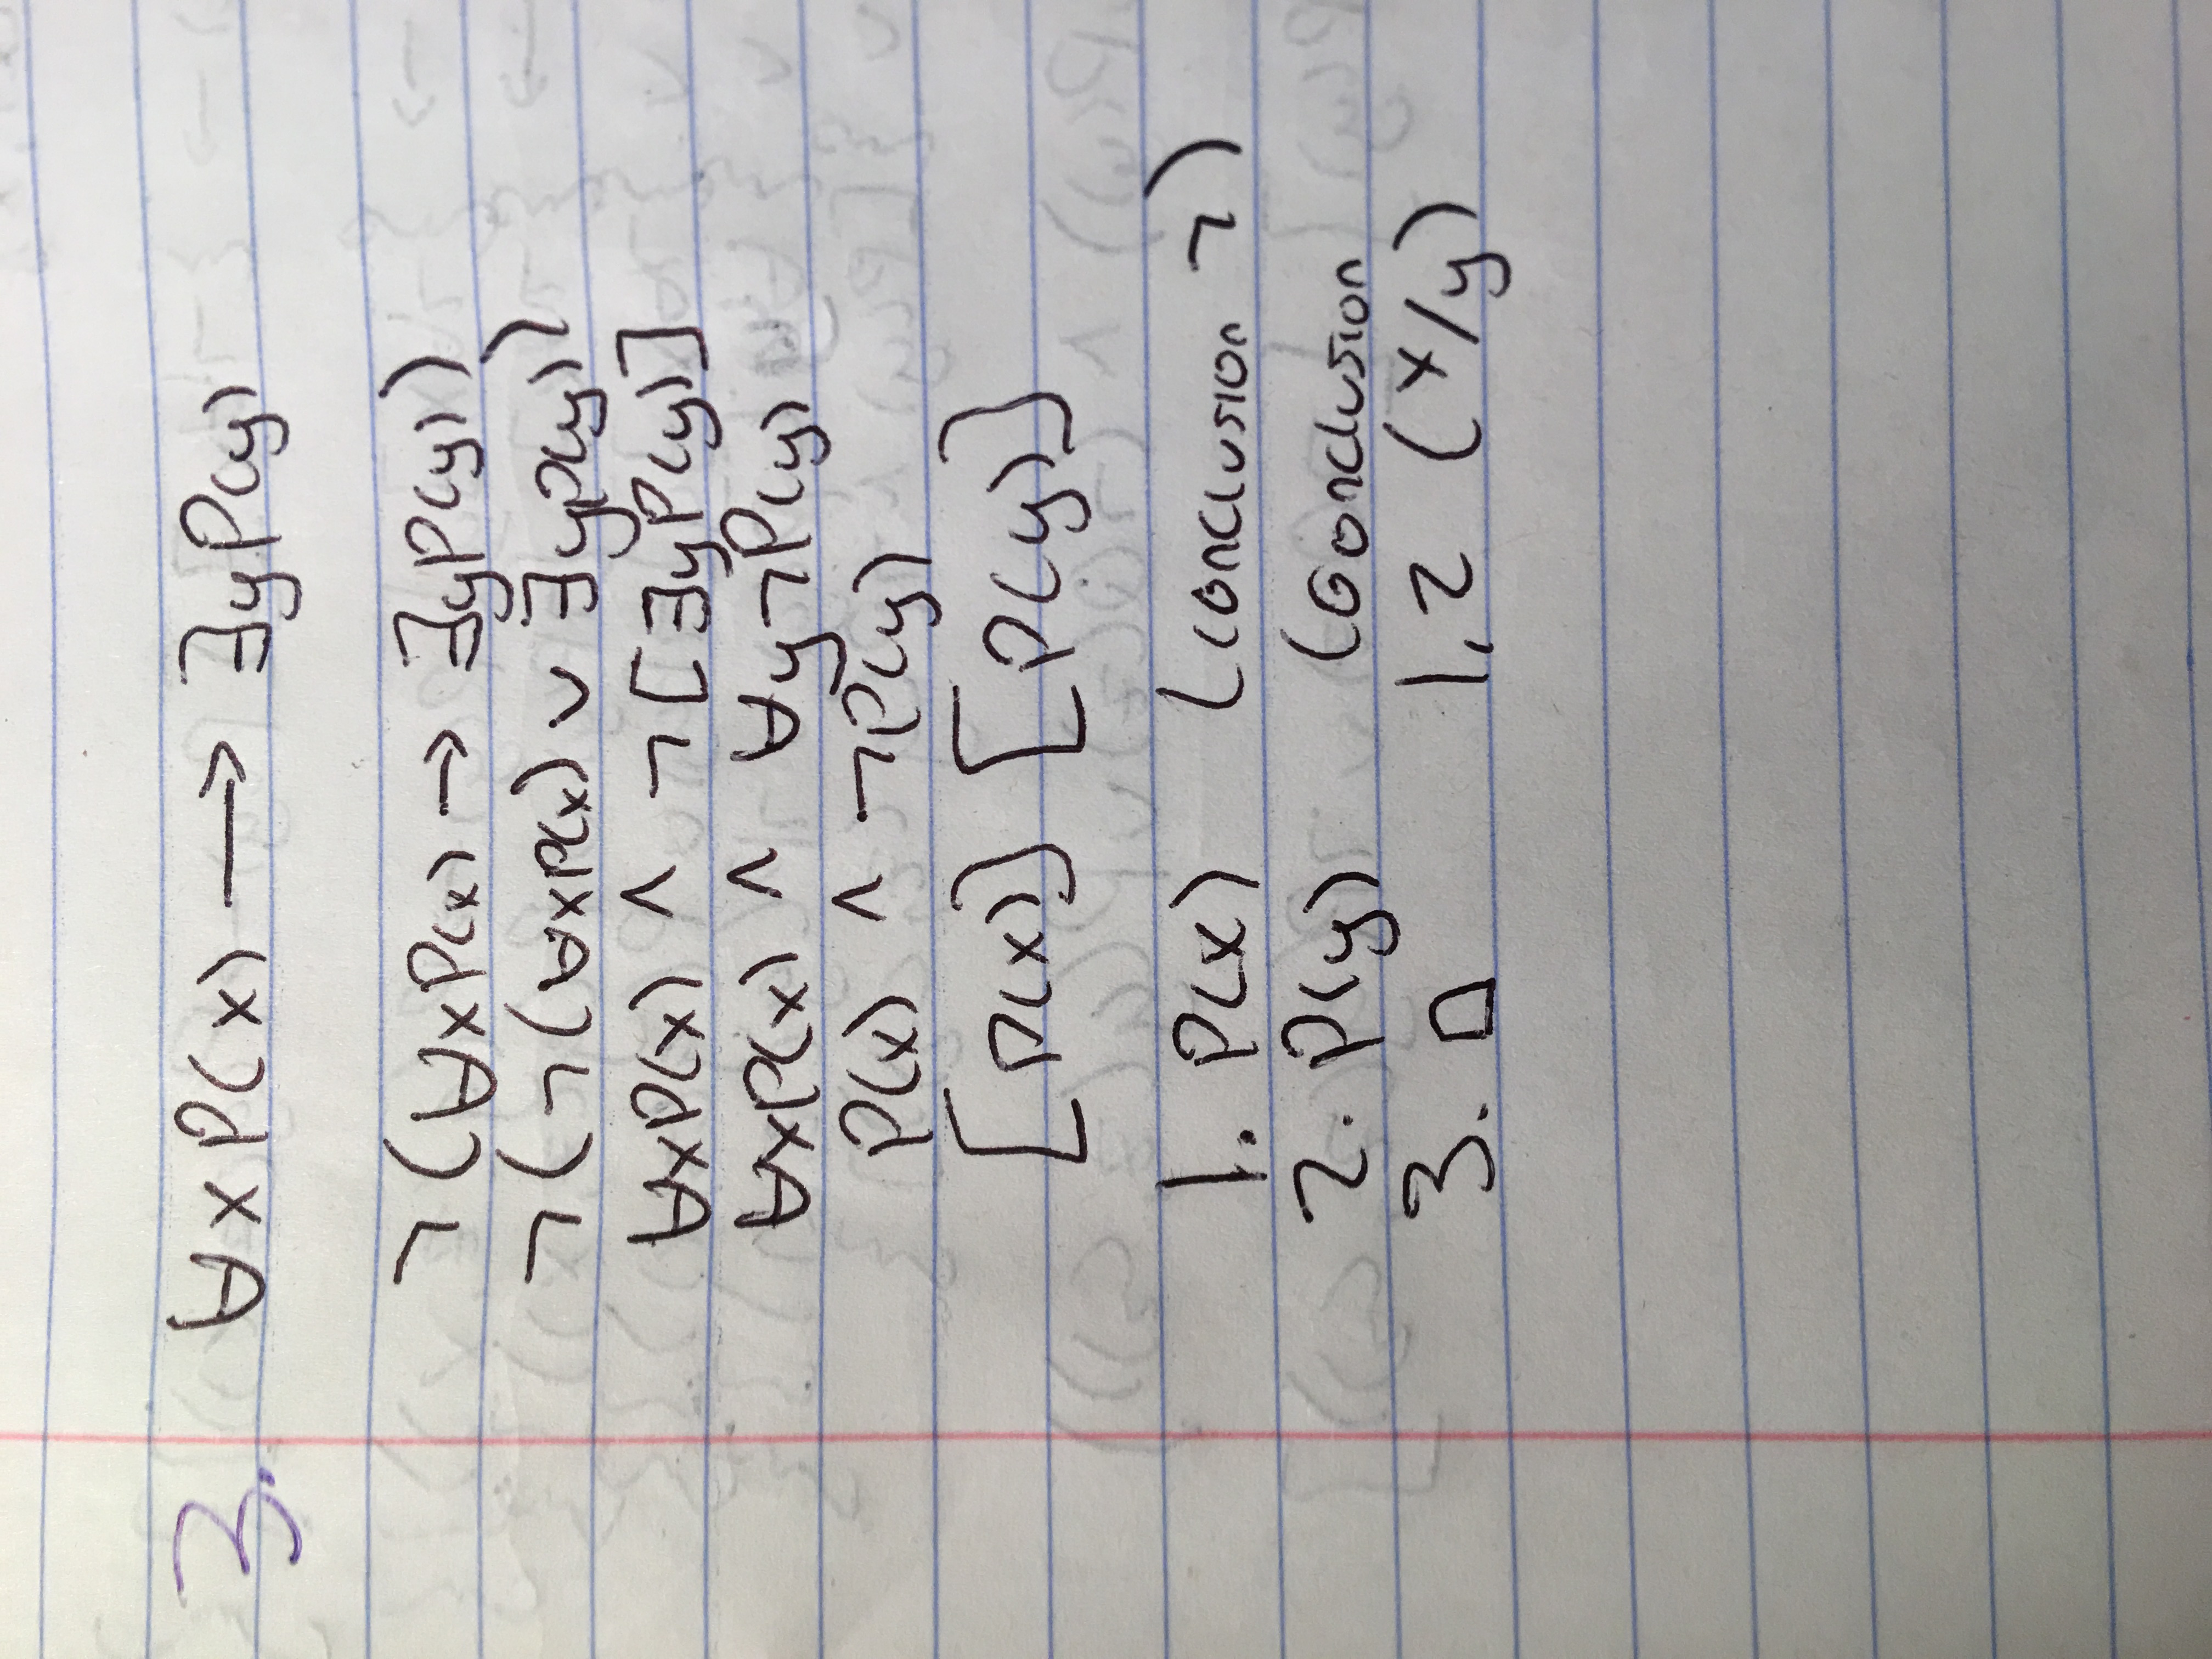 3. ∀xP(x) → ∃yP(y)
¬(∀xP(x) → ∃yP(y))
¬(¬(∀xP(x) ∨ ∃yP(y))
∀xP(x) ∧ ¬[∃yP(y)]
∀xP(x) ∧ ∀y¬P(y)
P(x) ∧ ¬P(y)
[P(x)] [P(y)]
1. P(x) (conclusion ¬)
2. P(y) (conclusion
3. □ 1,2 (x/y)